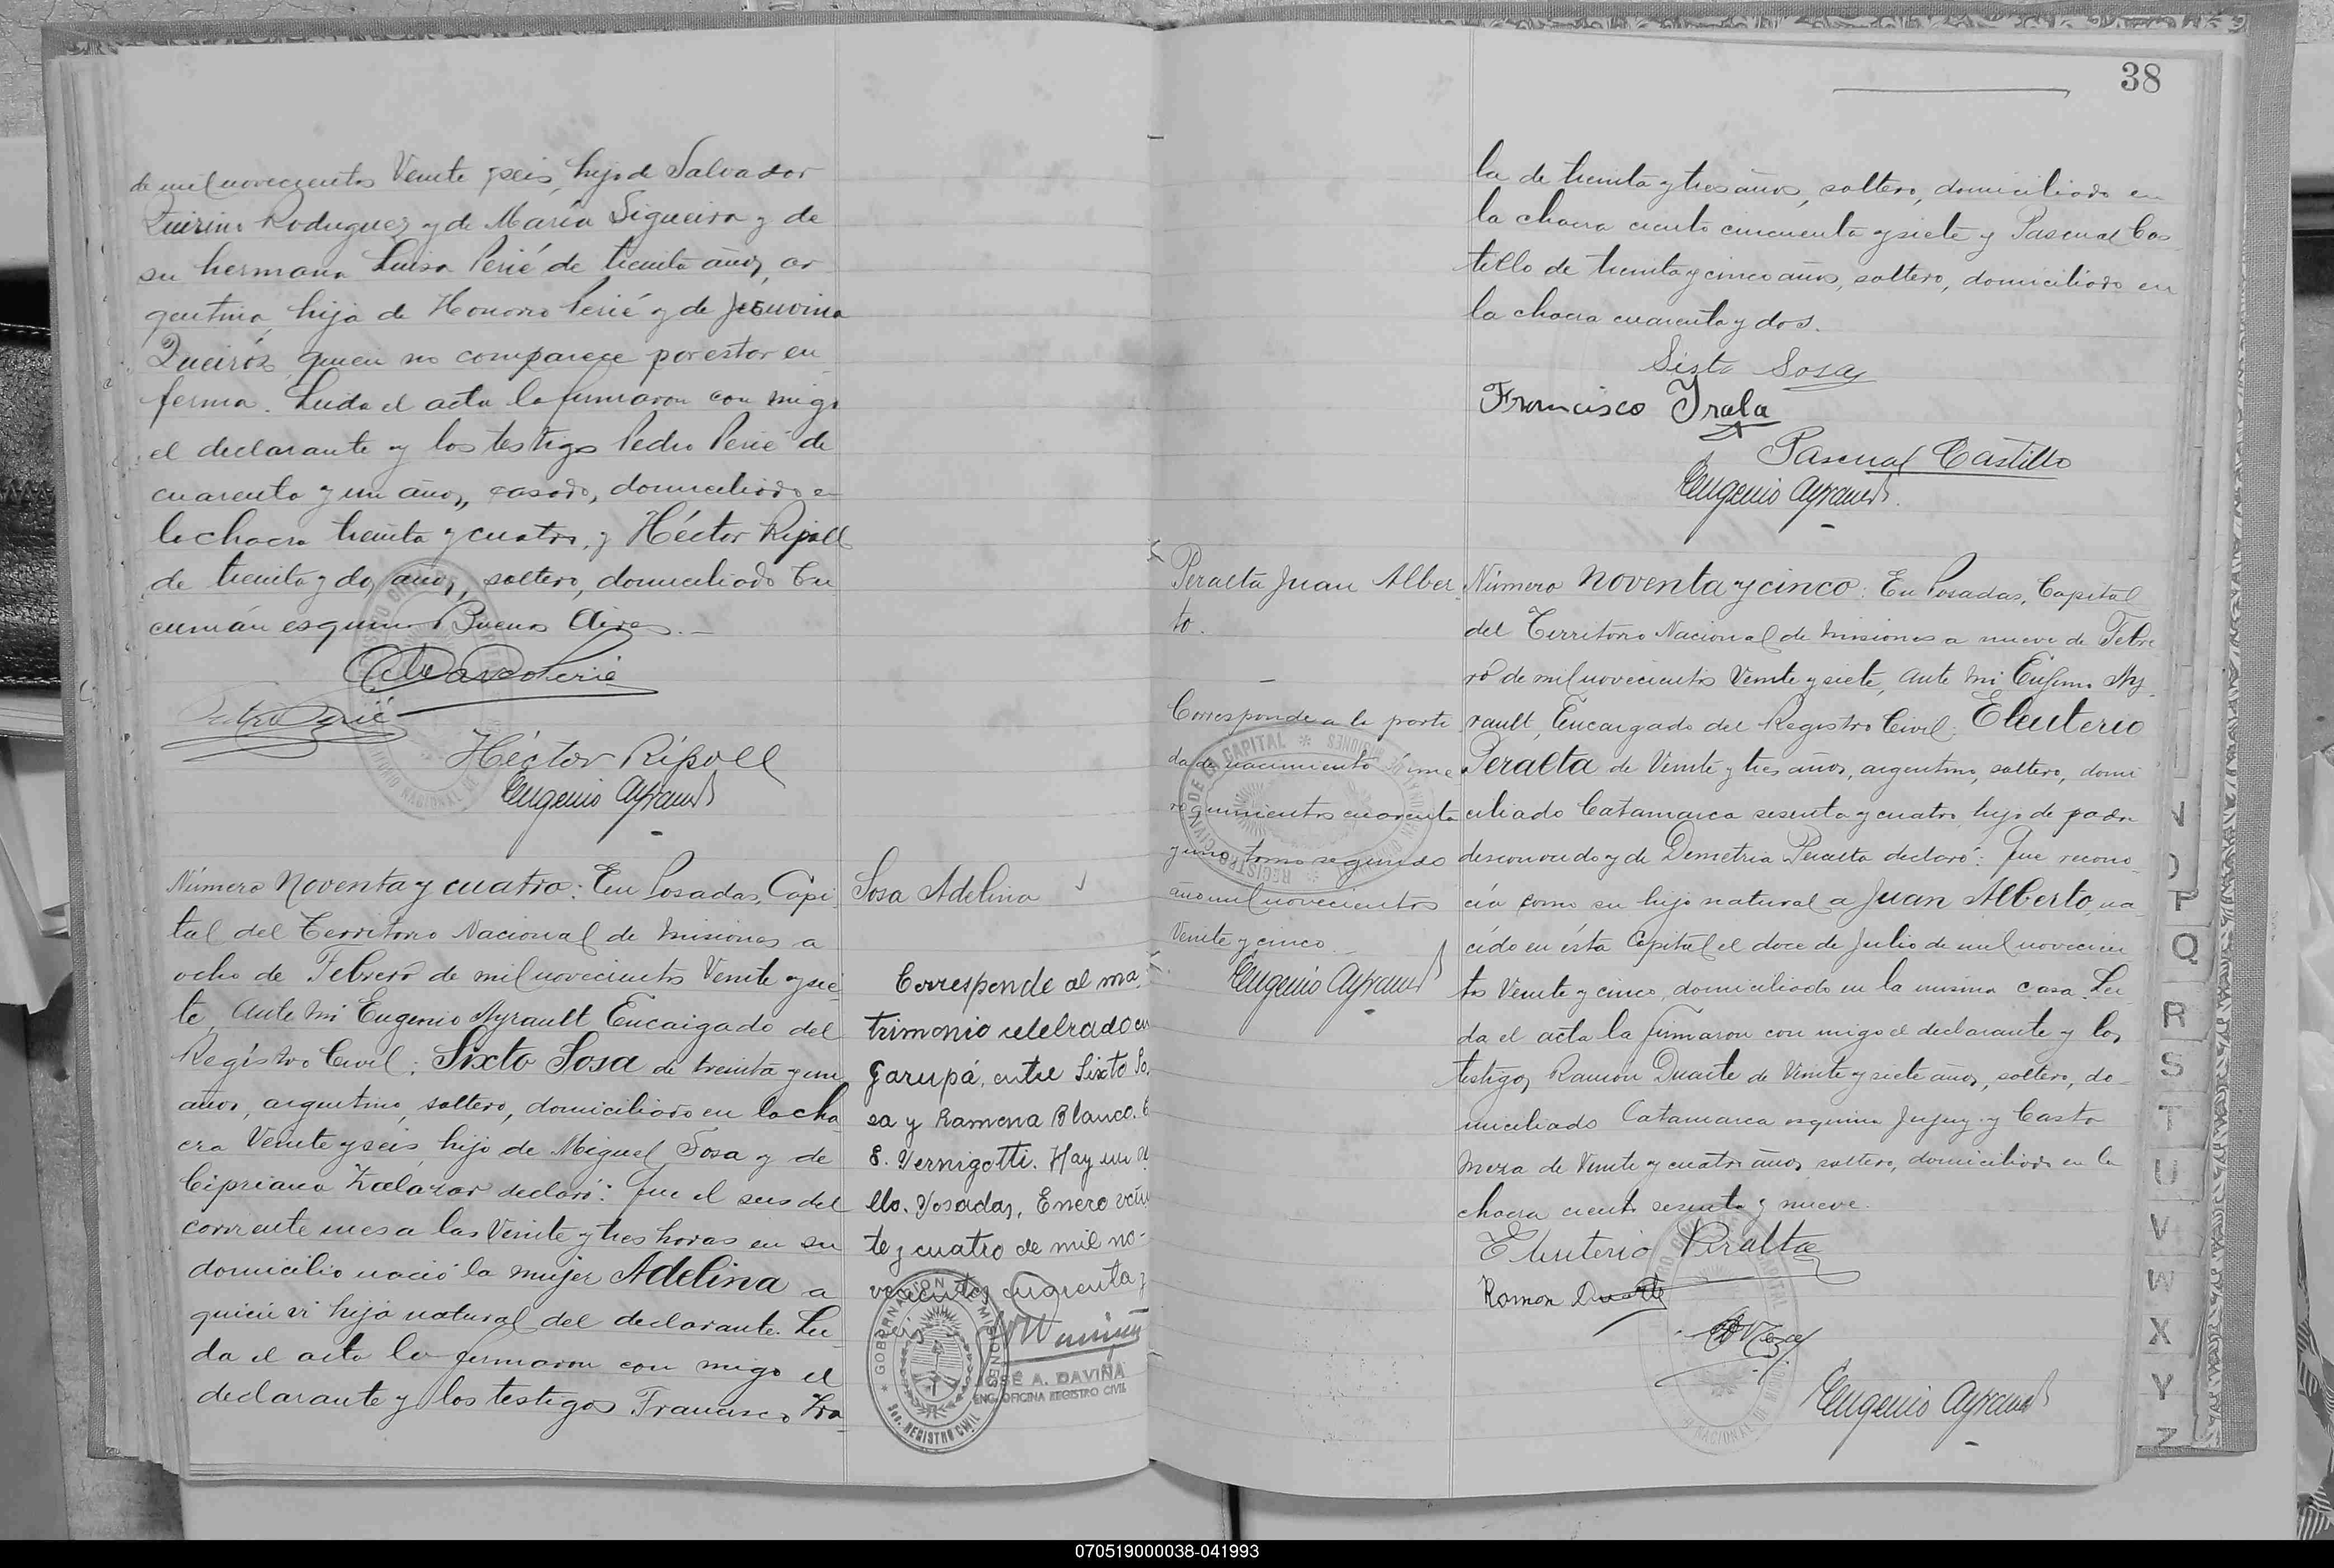 de mil novecientos Veinte y seis, hijo de Salvador
Quirino Rodriguez y de María Sigueira y de
su hermana Luisa Perié de treinta años, ar
gentina, hija de Honorio Perié y de Jesuvina
Queiróz, quien no comparece por estar en
ferma. Leida el acta la firmaron con migo
el declarante y los testigos Pedro Perié de
cuarenta y un años, casado, domiciliado en
la chacra treinta y cuatro, y Héctor Ripoll
de treinta y dos años, soltero, domiciliado Tu
cumán esquina Buenos Aires.
Pedro Perié
Héctor Ripoll
Eugenio Ayrault
Número Noventa y cuatro: En Posadas, Capi
tal del Territorio Nacional de Misiones a
ocho de Febrero de mil novecientos Veinte y sie
te, Ante Mi Eugenio Ayrault Encargado del
Registro Civil: Sixto Sosa de treinta y un
años, argentino, soltero, domiciliado en la cha
cra Veinte y seis, hijo de Miguel Sosa y de
Cipriana Zalazar declaró: Que el seis del
corriente mes a las Veinte y tres horas en su
domicilio nació la mujer Adelina a
quien vi hija natural del declarante. Lei
da el acta la firmaron con migo el
declarante y los testigos Francisco Ira
Sosa Adelina
Corresponde al ma
trimonio celebrado en
Garupá, entre Sixto So
sa y Ramona Blanco.
S. Vernigotti. Hay un se
llo. Posadas, Enero vein
te y cuatro de mil no-
vecientos cuarenta y
seis
GOBERNACION MISIONES
SEC. REGISTRO CIVIL
JOSÉ A. DAVIÑA
ENC. OFICINA REGISTRO CIVIL
38
la de treinta y tres años, soltero, domiciliado en
la chacra ciento cincuenta y siete y Pascual Cas
tillo de treinta y cinco años, soltero, domiciliado en
la chacra cuarenta y dos.
Sixto Sosa
Francisco Irala
Pascual Castillo
Eugenio Ayrault
Peralta Juan Alber
to.
Corresponde a la parti
da de nacimiento núme
ro quinientos cuarenta
y uno tomo segundo
año mil novecientos
Veinte y cinco
Eugenio Ayrault
REGISTRO CIVIL DE LA CAPITAL
Número Noventa y cinco: En Posadas, Capital
del Territorio Nacional de Misiones a nueve de Febre
ro de mil novecientos Veinte y siete, Ante Mi Eugenio Ay
rault, Encargado del Registro Civil: Eleuterio
Peralta de Veinte y tres años, argentino, soltero, domi
ciliado Catamarca sesenta y cuatro, hijo de padre
desconocido y de Demetria Peralta declaró: Que recono
cía como su hijo natural a Juan Alberto, na
cido en ésta Capital el doce de Julio de mil novecien
tos Veinte y cinco, domiciliado en la misma casa. Lei
da el acta la firmaron con migo el declarante y los
testigos, Ramon Duarte de Veinte y siete años, soltero, do
miciliado Catamarca esquina Jujuy y Casto
Meza de Veinte y cuatro años soltero, domiciliado en la
chacra ciento sesenta y nueve.
Eleuterio Peralta
Ramon Duarte
Eugenio Ayrault
P
Q
R
S
T
U
V
W
X
Y
Z
070519000038-041993